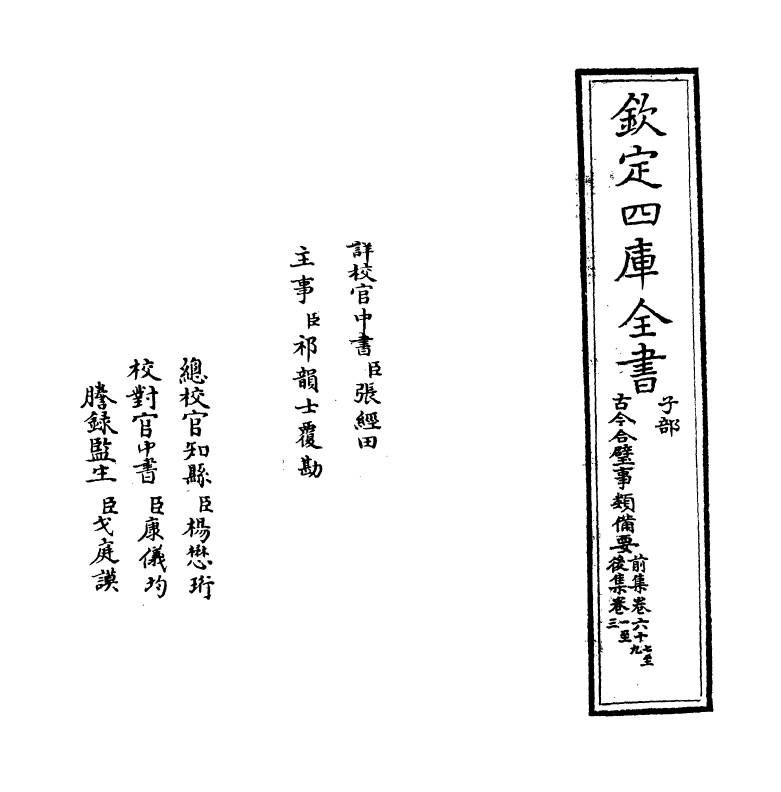 欽定四庫全書
子部
古今合璧事類備要
前集卷六十七至九
後集卷一至三
詳校官中書臣張經田
主事臣祁韻士覆勘
總校官知縣臣楊懋珩
校對官中書臣康儀均
謄錄監生臣戈庭謨